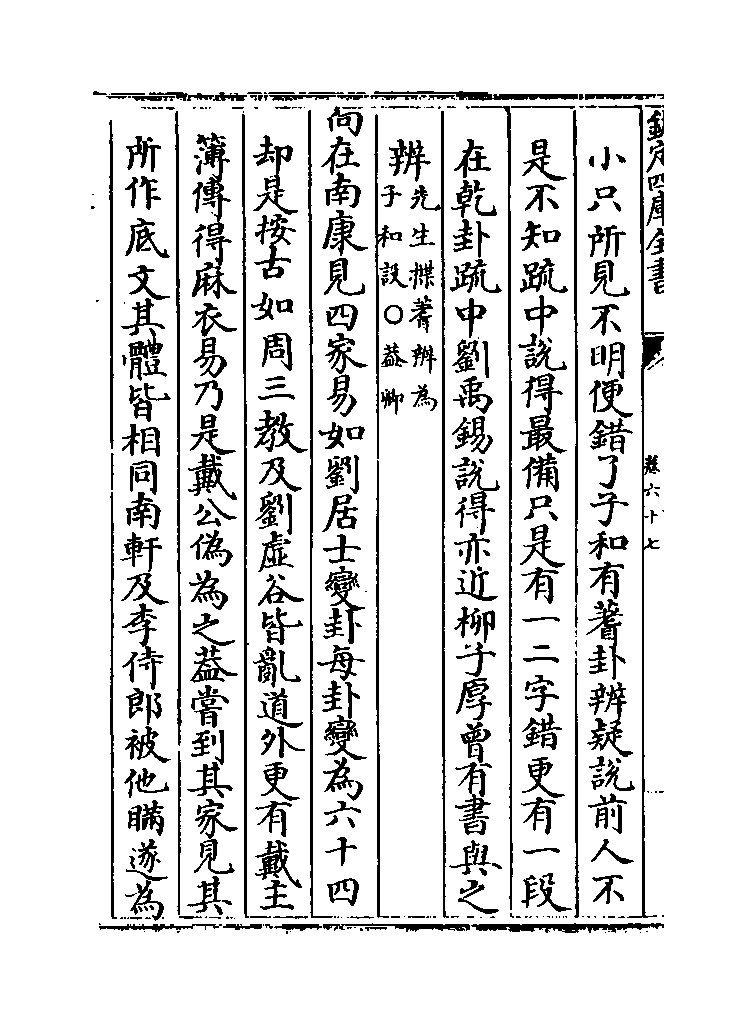 欽定四庫全書
卷六十七
小只所見不明便錯了子和有蓍卦辨疑說前人不
是不知疏中說得最備只是有一二字錯更有一段
在乾卦疏中劉禹錫說得亦近柳子厚曾有書與之
辨先生揲蓍辨為
子和設〇蓋卿
向在南康見四家易如劉居士變卦每卦變為六十四
却是按古如周三教及劉虛谷皆亂道外更有戴主
簿傳得麻衣易乃是戴公偽為之蓋嘗到其家見其
所作底文其體皆相同南軒及李侍郎被他瞞遂為